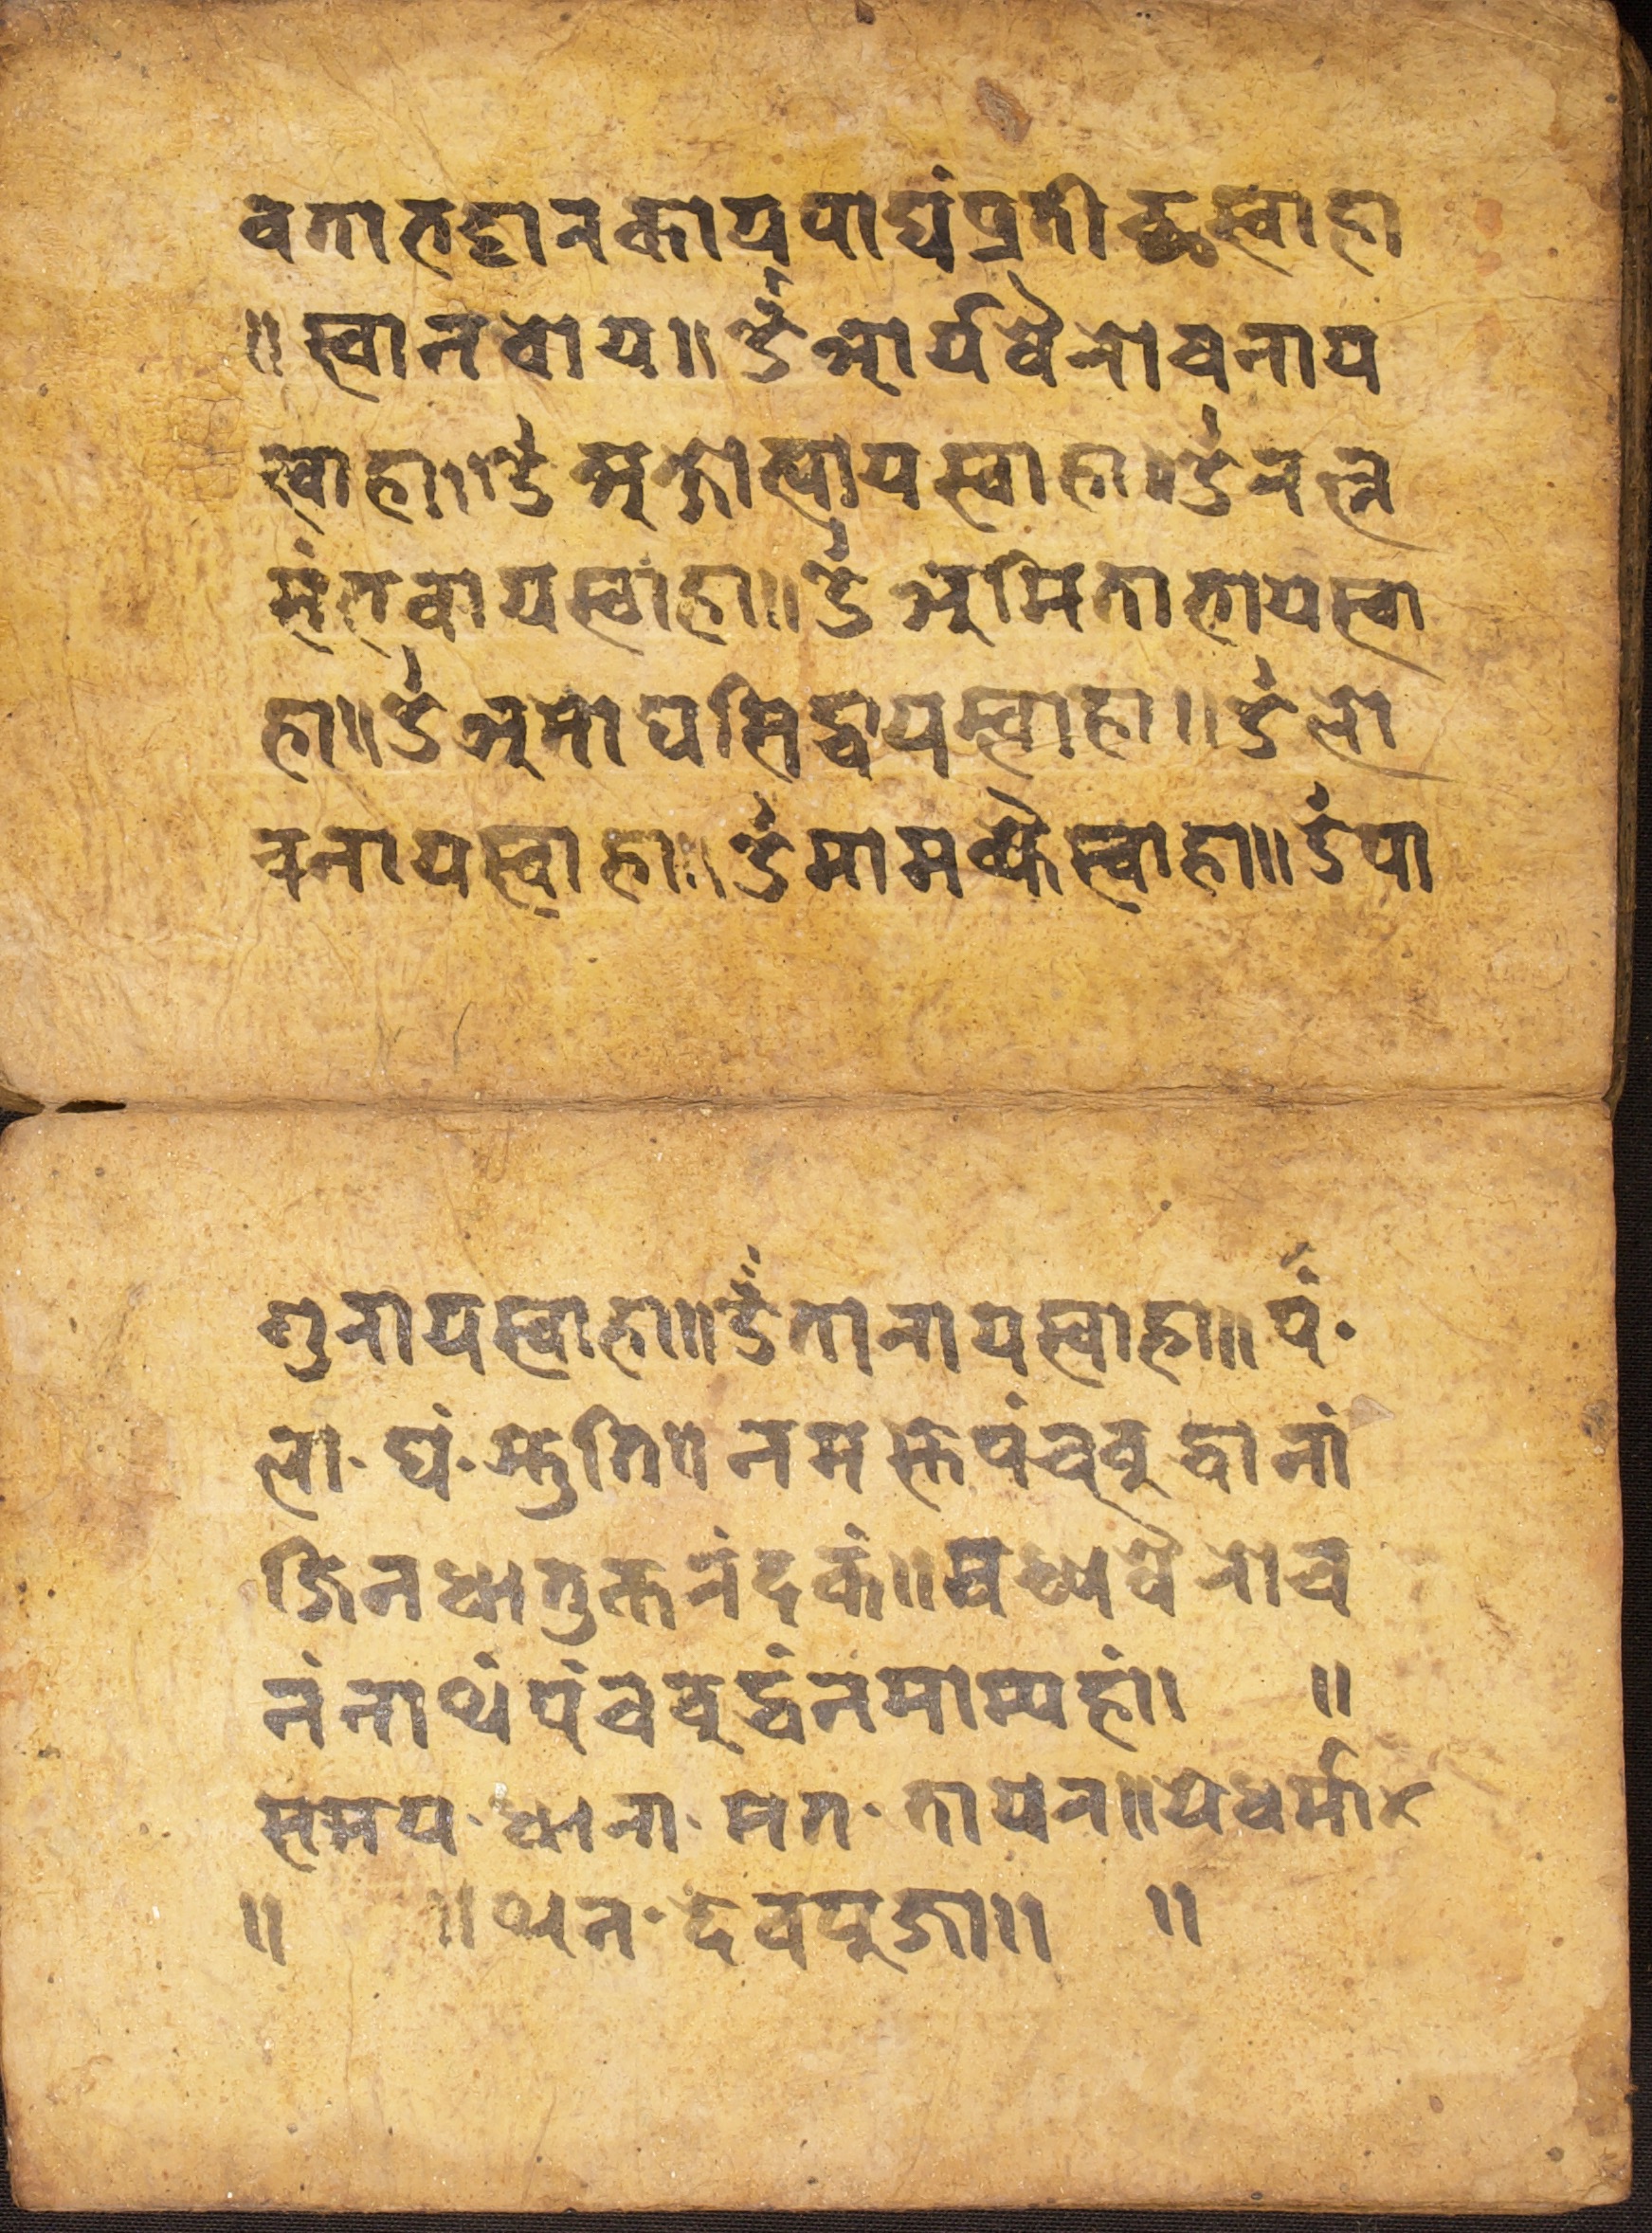 वताभट्टानकायपाद्यंप्रतीच्छस्वाहा
॥ स्वानबोय॥ ॐ आर्यवैरोचनाय
स्वाहा॥ ॐ अक्षोभ्यायस्वाहा॥ ॐ रत्न
संभवायस्वाहा॥ ॐ अमिताभायस्वा
हा॥ ॐ अमोघसिद्धायस्वाहा॥ ॐ लो
चनायस्वाहा॥ ॐ मामक्यैस्वाहा॥ ॐ पा
ण्डुरायस्वाहा॥ ॐ तारायस्वाहा॥ पं·
ला· घं· स्तुति॥ नमस्तेपंचबुद्धानां
जिनधातुकरंदकं॥ मध्यवैरोच
नंनाथंपंचबुद्धंनमाम्यहं॥ ॥
समय· धाना· मत· तायन॥ येधर्मा ४
॥ ॥ थन· देवपूजा॥ ॥